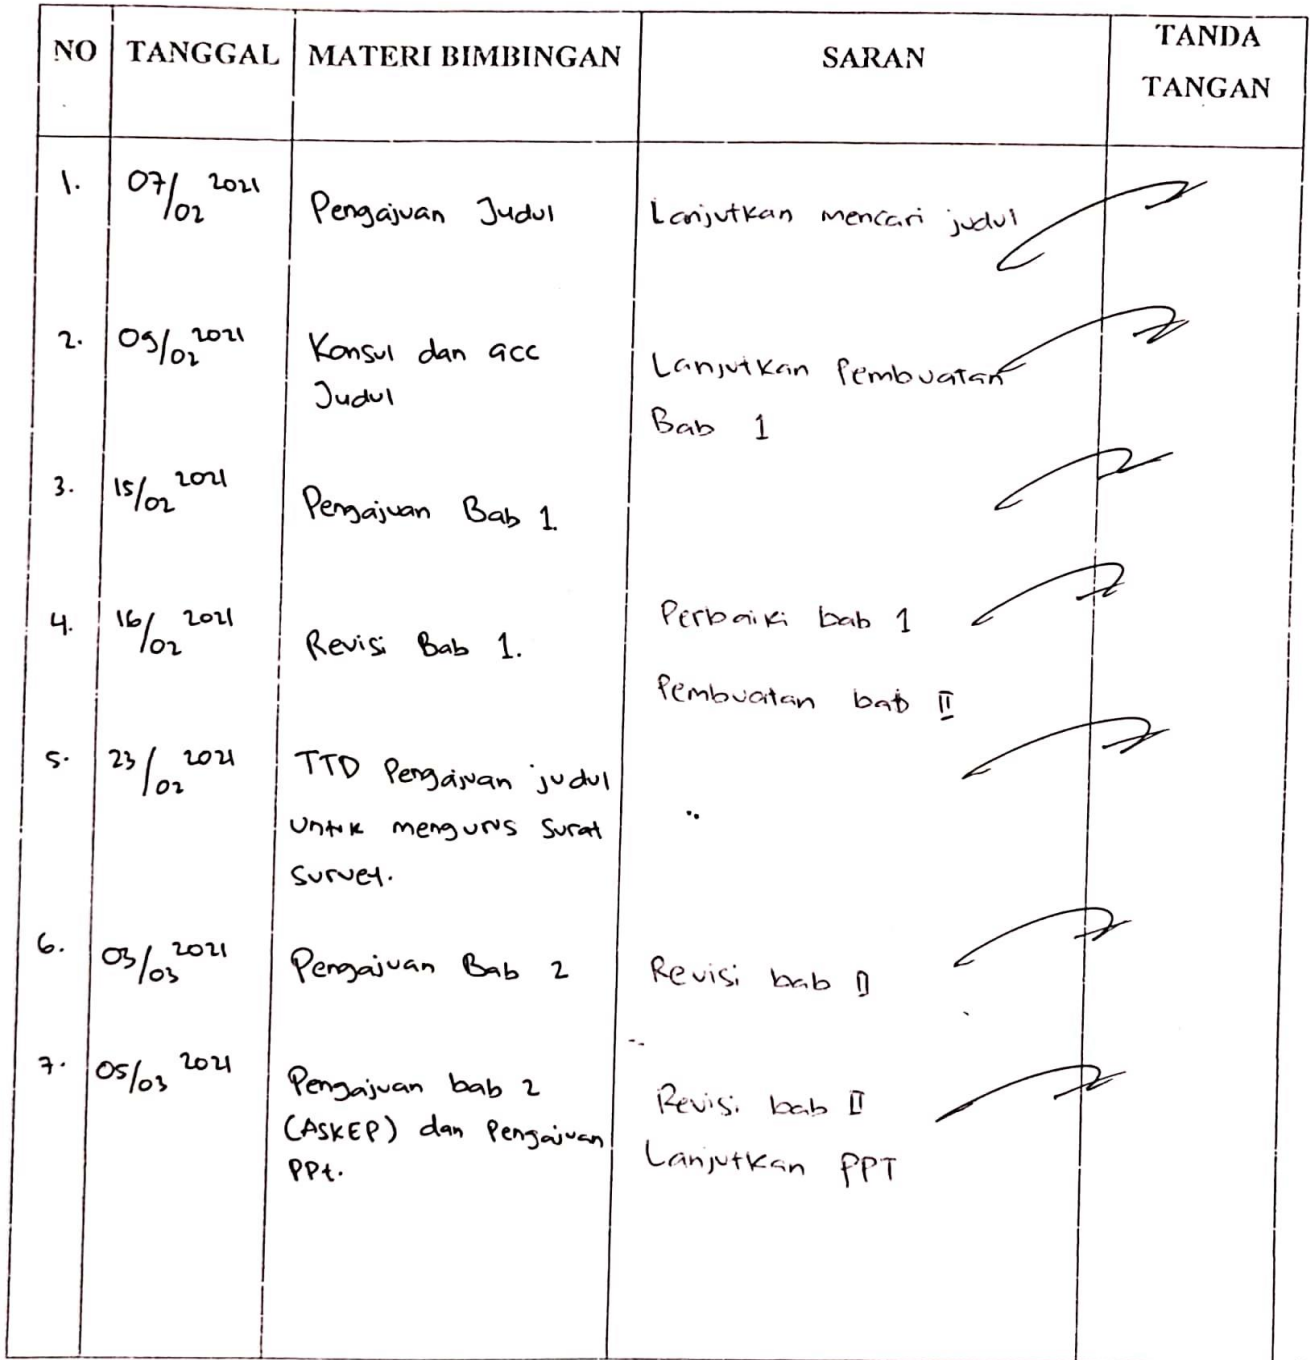 NO TANGGAL MATERI BIMBINGAN SARAN TANDA TANGAN
1. 07/02 2021 Pengajuan Judul Lanjutkan mencari judul
2. 09/02 2021 Konsul dan acc Lanjutkan Pembuatan
Judul Bab 1
3. 15/02 2021 Pengajuan Bab 1
4. 16/02 2021 Revisi Bab 1. Perbaiki bab 1
Pembuatan bab II
5. 23/02 2021 TTD Pengajuan judul
untuk mengurus surat
survey.
6. 03/03 2021 Pengajuan Bab 2 Revisi bab II
7. 05/03 2021 Pengajuan bab 2 Revisi bab II
(ASKEP) dan Pengajuan Lanjutkan PPT
PPt.